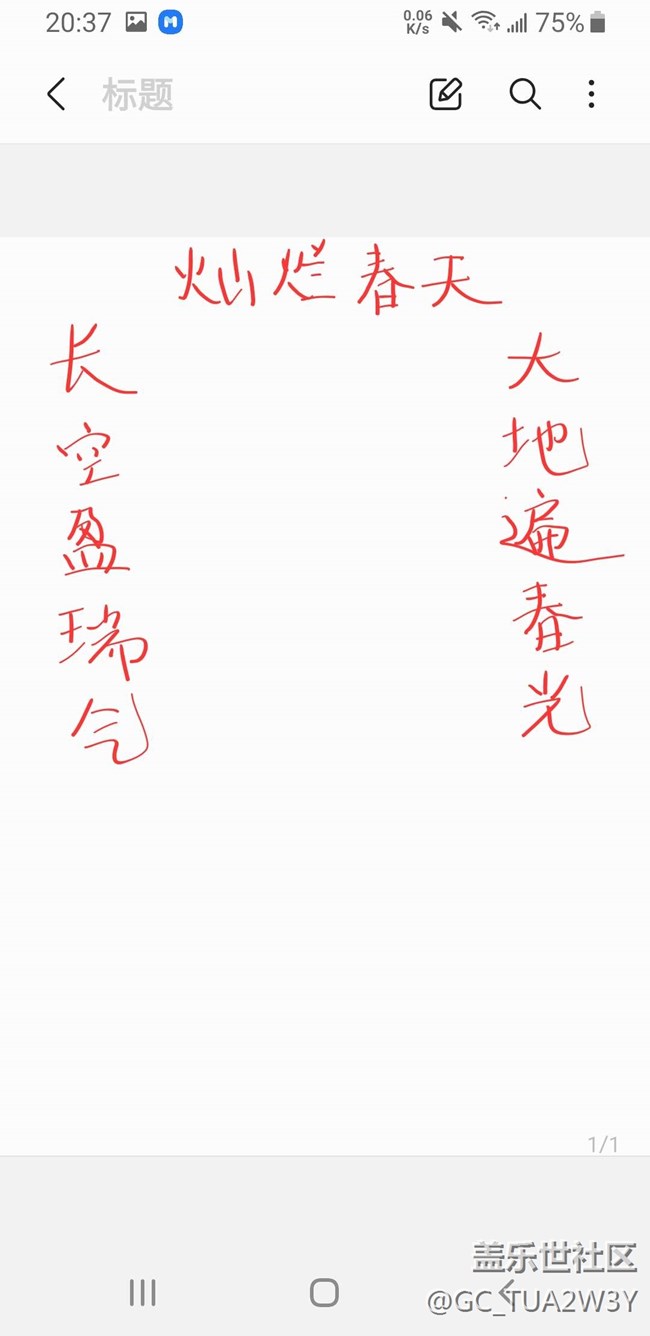 20:37 0.06 K/s 75%
标题
灿烂春天
大地遍春光
长空盈瑞气
1/1
盖乐世社区
@GC_TUA2W3Y